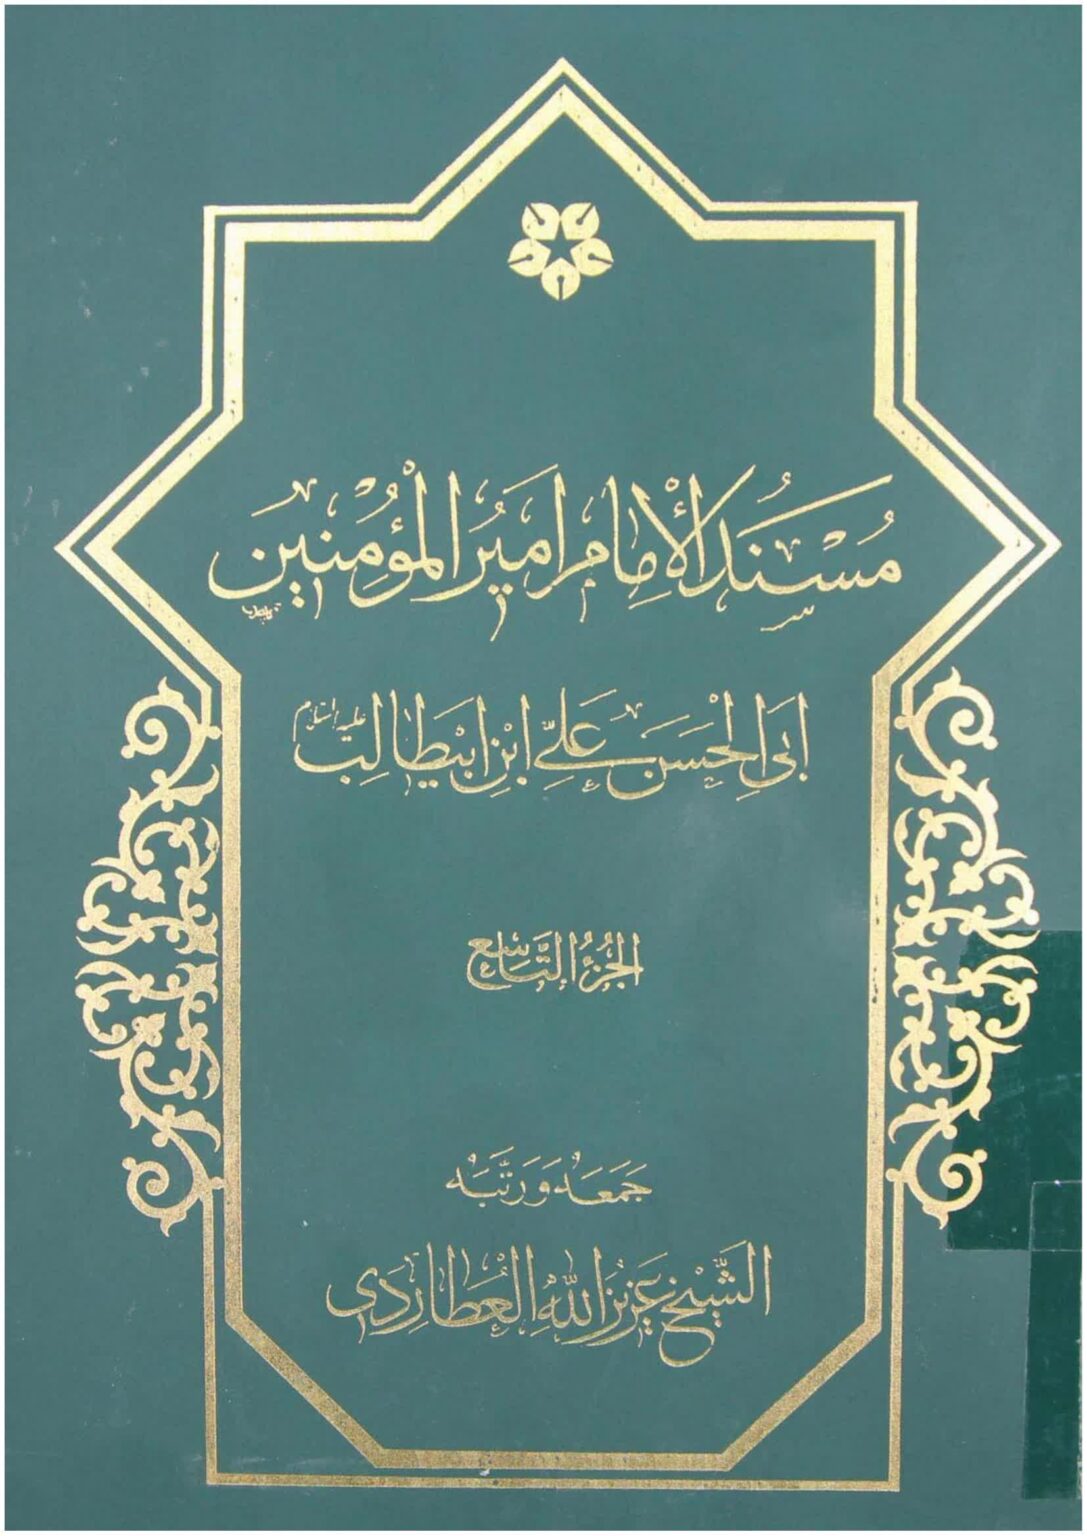 مُسْنَدُ الْإِمَامِ اَمِيرِ الْمُؤْمِنِينَ
اَبِى الْحَسَنِ عَلِىِّ ابْنِ ابَيطالِبْ عليه السلام
الجُزْءُ التَّاسِع
جَمَعَهُ وَرَتَّبَهُ
الشَّيْخُ عَزِيزُ اللّٰهِ الْعُطارِدِى